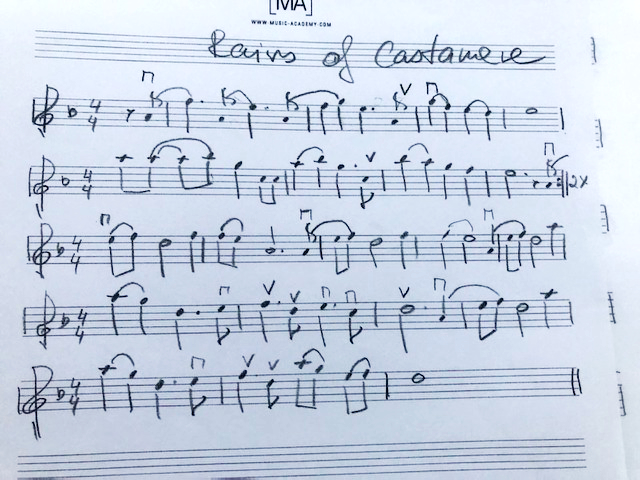 MA
WWW.MUSIC-ACADEMY.COM
Rains of Castamere
4 4
4 4 2x
4 4
4 4
4 4